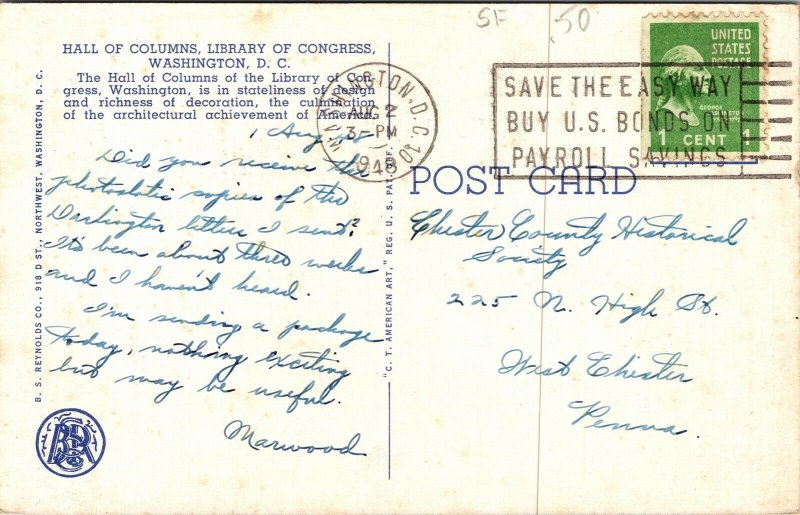 SF .50
HALL OF COLUMNS, LIBRARY OF CONGRESS,
WASHINGTON, D. C.
The Hall of Columns of the Library of Con-
gress, Washington, is in stateliness of design
and richness of decoration, the culmination
of the architectural achievement of America.
1 Aug 48
Did you receive the
photostatic copies of the
Darlington letters I sent?
It's been about three weeks
and I haven't heard.
I'm sending a package
today, nothing exciting
but may be useful.
Marwood
B. S. REYNOLDS CO., 918 D ST., NORTHWEST, WASHINGTON, D. C.
"C. T. AMERICAN ART," REG. U. S. PAT. OFF.
WASHINGTON, D.C. 10
AUG 2
3-PM
1948
SAVE THE EASY WAY
BUY U.S. BONDS ON
PAYROLL SAVINGS
UNITED
STATES
POSTAGE
GEORGE
WASHINGTON
1 CENT 1
POST CARD
Chester County Historical
Society
225 N. High St.
West Chester
Penna.